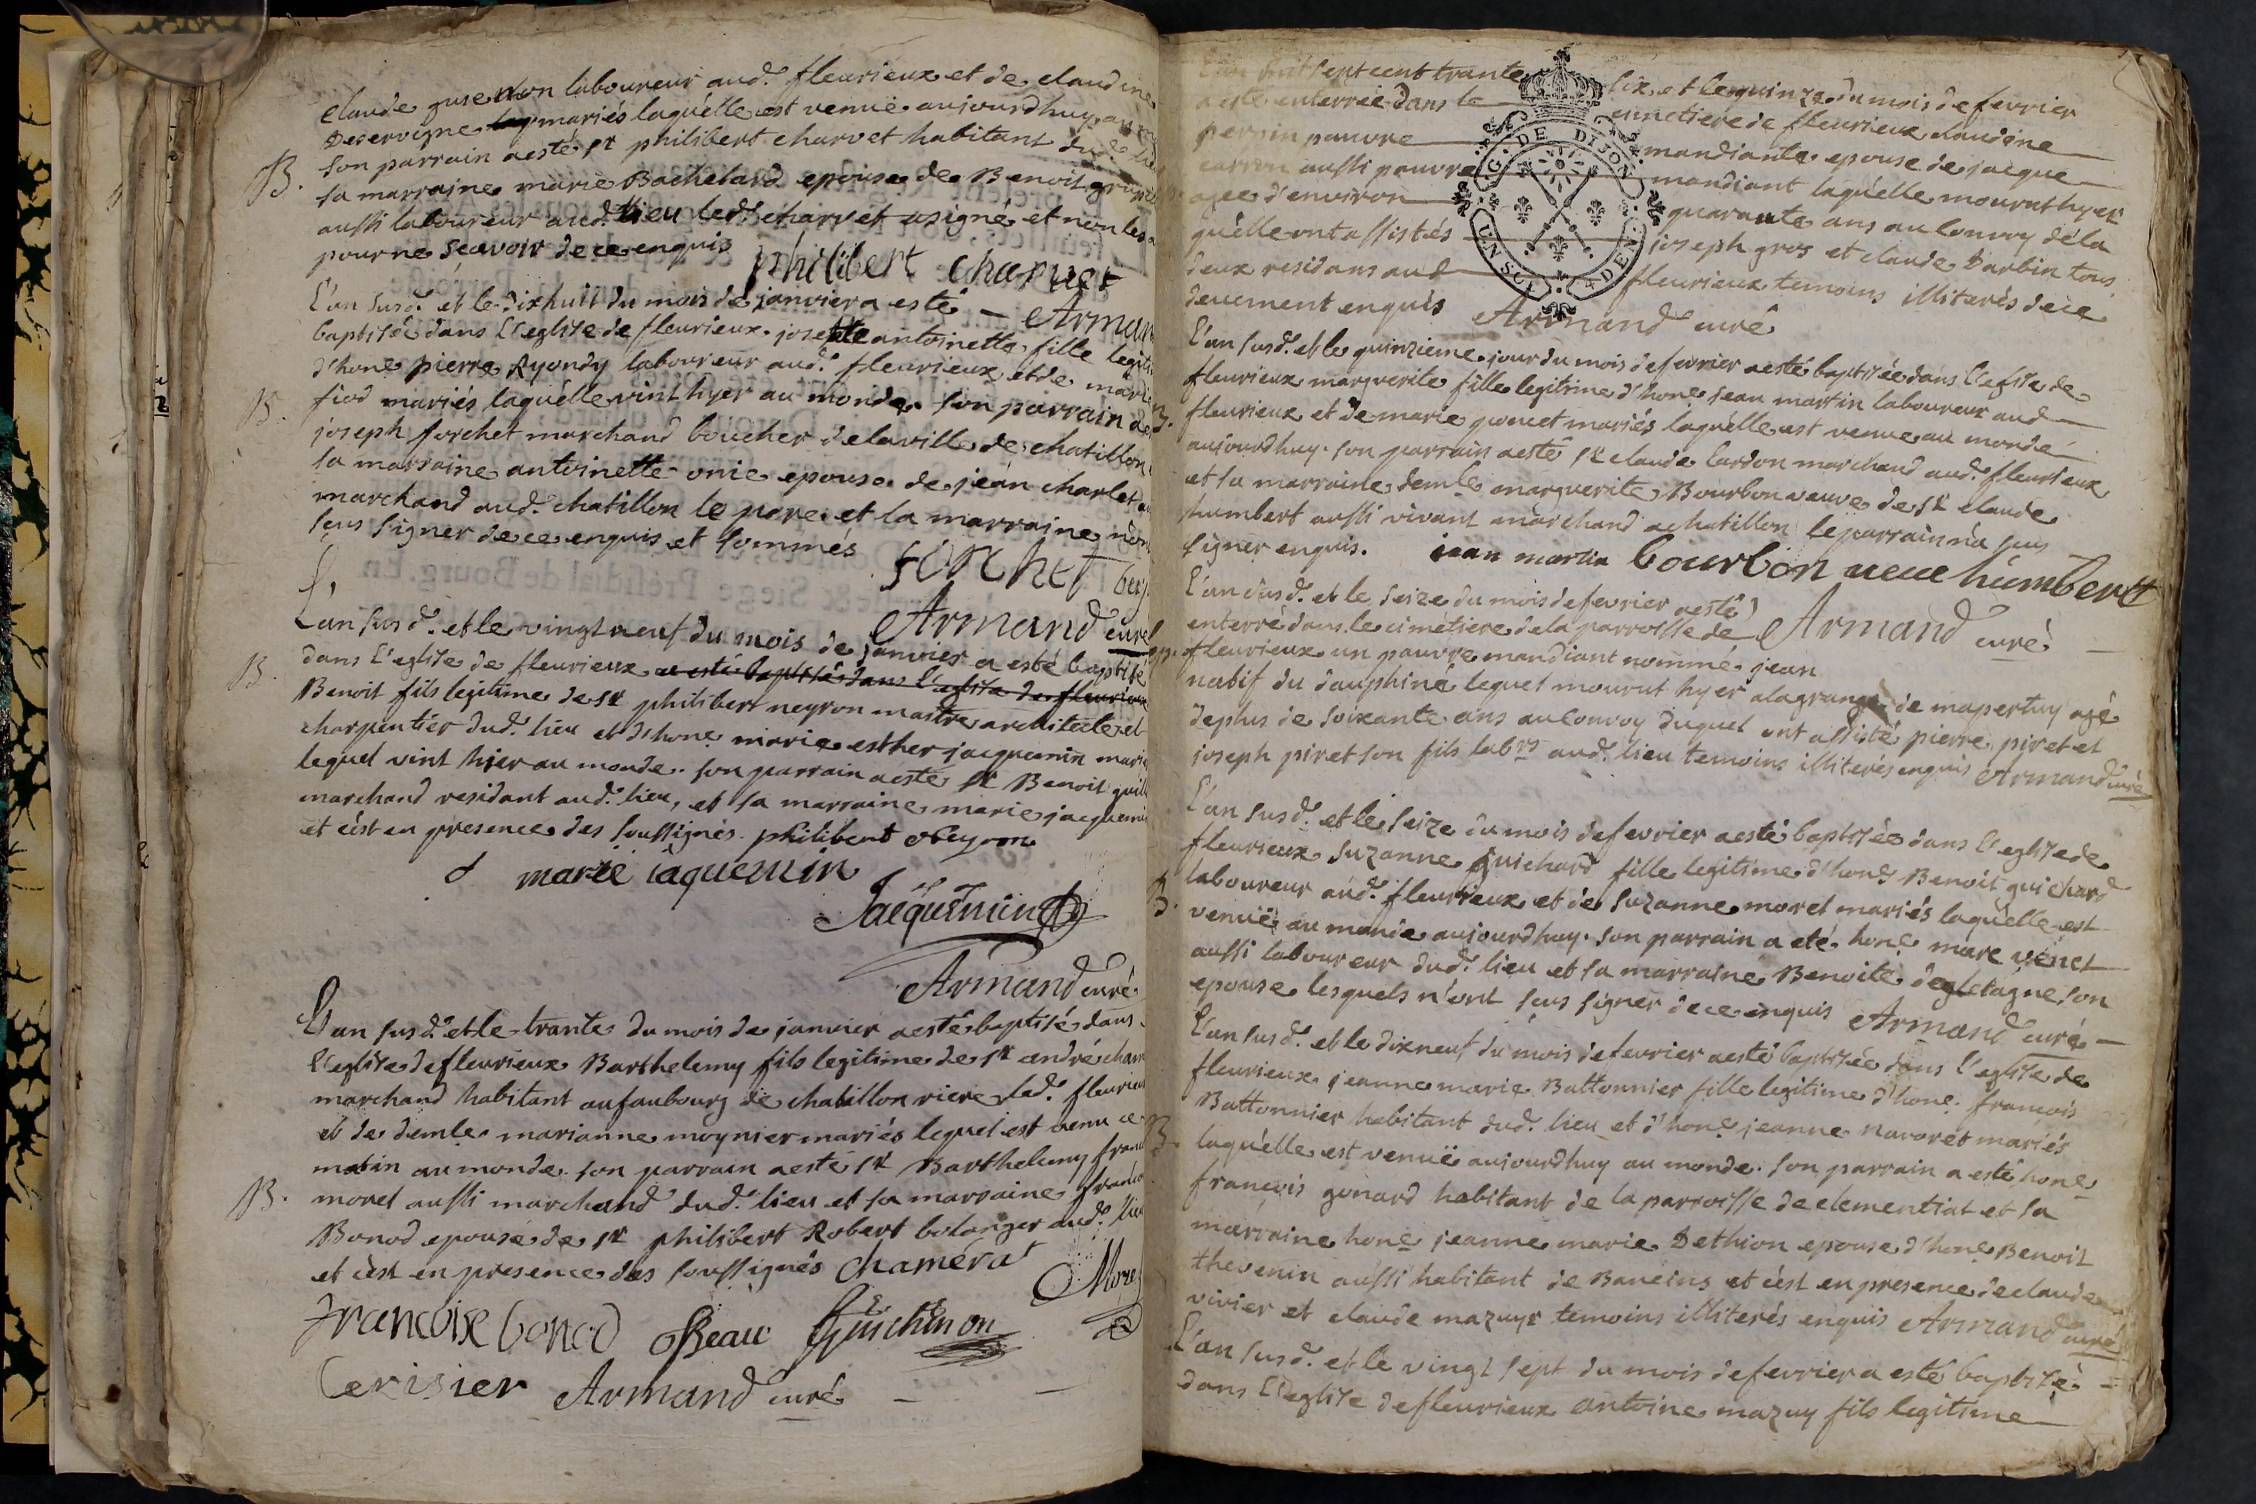 claude gusenon laboureur aud.^t fleurieux et de claudine
Deservigne mariés laquélle est venuë aujourdhuy au
son parrain a esté s^r philibert charvet habitant dud.^t
B.
sa marraine marie Bachelard epouse de Benoit
aussi laboureur aud.^t lieu led.^t charvet a signé et non les
pour ne scavoir de ce enquis
philibert charuet
L'an susd.^t et le dixhuit du mois de janvier a esté — Arman
baptisée dans l'eglise de fleurieux josephte antoinette fille legit
d'hone pierre Ryondy laboureur aud.^t fleurieux et de marie
B.
fiod mariés laquélle vint hyer au monde son parrain
joseph forchet marchand boucher de la ville de chatillon
sa marraine antoinette onie epouse de jean charlet
marchand aud.^t chatillon le pere et la marraine n'on
sceus signer de ce enquis et sommés
forchet
Armand curé
L'an susd.^t et le vingt neuf du mois de janvier a esté baptisé
B.
dans l'eglise de fleurieux a esté baptisés dans l'eglise de fleurieux
Benoit fils legitime de s^r philibert neyron maitre architecte et
charpentier dud.^t lieu et d'hone marie esther jacquemin marié
lequel vint hier au monde. son parrain a esté s^r Benoit
marchand residant aud.^t lieu, et sa marraine marie jacquemin
et c'est en presence des soussignés. philibert Neyron
marie iaquemin
Jacquemin
Armand curé
L'an susd.^t et le trante du mois de janvier a esté baptisé dans
l'eglise de fleurieux Barthelemy fils legitime de s^r andré cham
marchand habitant au faubourg de chatillon riere lad.^t fleurieux
et de demle marianne moynier mariés lequel est venu ce
matin au monde. son parrain a esté s^r Barthelemy franc
B.
morel aussi marchand dud.^t lieu et sa marraine franco
Bonod epouse de s^r philibert Robert bolanger aud.^t lieu
et c'est en presence des soussignés chamerat
More
francoise bonod Beau Guichenon
Cerisier Armand curé —
L'an mil sept cent trante six et le quinze du mois de fevrier
a esté enterrée dans le cimetiere de fleurieux claudine
perrin pauvre mandiante epouse de jacque
carron aussi pauvre mandiant laquélle mourut hyer
agee d'environ quarante ans au convoy déla
quélle ont assistés joseph gros et claude Darbin tous
deux residans aud fleurieux temoins illiterés de ce
deuement enquis Armand curé
G. DE DIJON
L'an susd.^t et le quinzieme jour du mois de fevrier a esté baptisée dans l'eglise de
fleurieux marguerite fille legitime d'hone jean martin laboureur aud
B.
fleurieux et de marie poncet mariés laquélle est venue au monde
aujourdhuy. son parrain a esté s^r claude Cardon marchand aud.^t fleurieux
et sa marraine demle marguerite Bourbon veuve de s^r claude
humbert aussi vivant marchand a chatillon le parrain n'a sceu
signer enquis. jean martin bourbon ueue humbert
L'an susd.^t et le seize du mois de fevrier a esté
enterré dans le cimetiere de la parroisse de Armand curé —
fleurieux un pauvre mandiant nommé jean
natif du dauphiné lequel mourut hyer a la grange de mapertuy agé
de plus de soixante ans au convoy duquel ont assisté pierre piret et
joseph piret son fils lab^rs aud.^t lieu temoins illiterés enquis Armand curé
L'an susd.^t et le seize du mois de fevrier a esté baptisée dans l'eglise de
fleurieux suzanne guichard fille legitime d'hone Benoit guichard
laboureur aud.^t fleurieux et de suzanne morel mariés laquélle est
B.
venuë au monde aujourdhuy. son parrain a eté hone marc venet
aussi laboureur dud.^t lieu et sa marraine Benoite degletagne son
epouse lesquels n'ont sceus signer de ce enquis Armand curé —
L'an susd.^t et le dixneuf du mois de fevrier a esté baptisée dans l'eglise de
fleurieux jeanne marie Battonnier fille legitime d'hone françois
Battonnier habitant dud.^t lieu et d'hone jeanne navoret mariés
B.
laquélle est venuë aujourdhuy au monde. son parrain a esté hone
françois gonard habitant de la parroisse de clementiat et sa
marraine hone jeanne marie Dethion epouse d'hone Benoit
thevenin aussi habitant de Baneins et c'est en presence de claude
vivier et claude mazuyr temoins illiterés enquis Armand curé
L'an susd.^t et le vingt sept du mois de fevrier a esté baptisé —
dans l'eglise de fleurieux antoine mazuy fils legitime